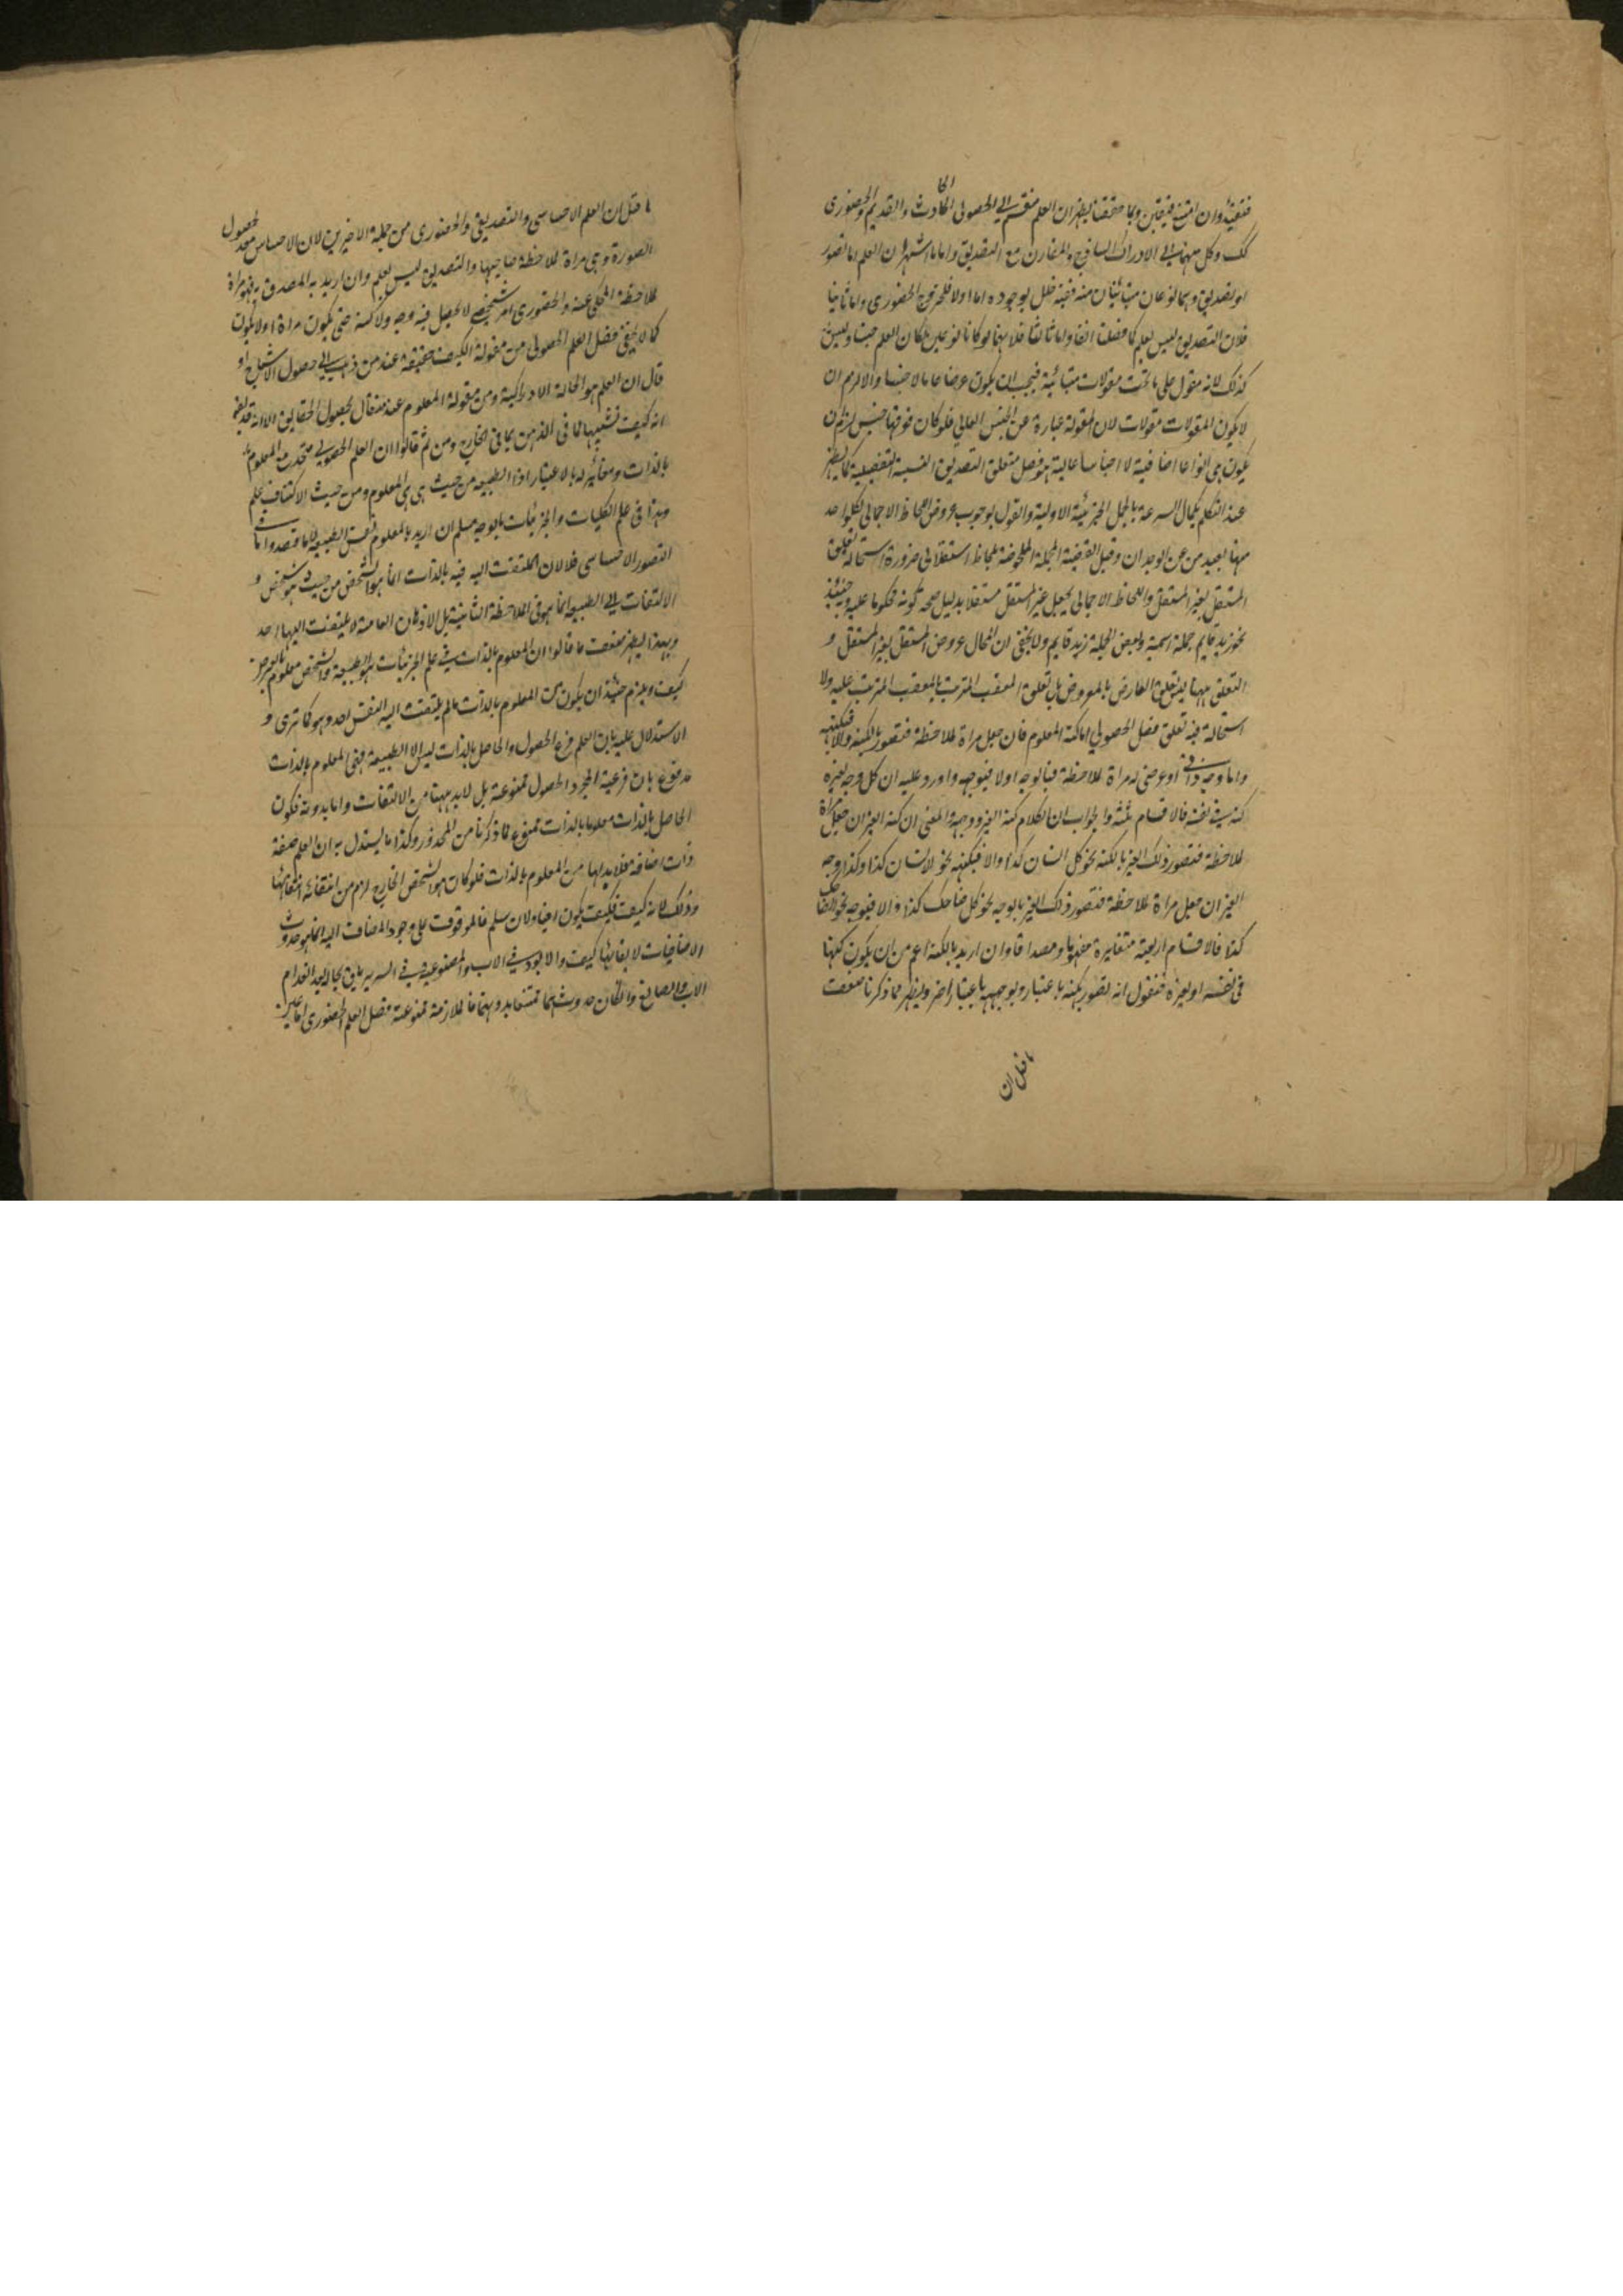 فقيدا وان اقتسم فيقين وبما حققنا يظهر ان العلم منقسم الى الحصولى الحادث والقديم والحضورى
كك وكل منهما الى الادراك الساذج والمقارن مع التصديق واما ما اشتهر ان العلم اما تصور
او تصديق وهما نوعان متباينان منه ففيه خلل بوجوه اما اولا فلخروج الحضورى واما ثانيا
فلان التصديق ليس بعلم كما فصلنا انفا واما ثالثا فلانهما لو كانا نوعين لكان العلم جنسا وليس
كذلك لانه مقول على ما تحت مقولات متباينة فيجب ان يكون عرضا عاما لا جنسا والا لزم ان
لا يكون المقولات مقولات لان المقولة عبارة عن الجنس العالى فلو كان فوقها جنس لزم ان
يكون هى انواعا اضافية لا اجناسا عالية هو فصل متعلق التصديق النسبية التفصيلية كما يظهر
عند التكلم بكمال السرعة بالجمل الخبرية الاولية والقول بوجوب عروض لحاظ الاجمالى لكل واحد
منها بعيد من عن الوجدان وقيل القضية المجملة الملحوظة بلحاظ استقلالى ضرورة استحالة تعلق
المستقل بغير المستقل واللحاظ الاجمالى يجعل غير المستقل مستقلا بدليل صحة كونه محكوما عليه وحينئذ
نحو زيد قايم جملة اسمية وبعض الجملة زيد قايم ولا يخفى ان المحال عروض المستقل لغير المستقل و
التعلق ههنا ليس تعلق العارض بالمعروض بل تعلق المعقب المترتب بالمعقب المترتب عليه ولا
استحالة فيه تعلق فصل الحصولى اما كنه المعلوم فان جعل مراة لملاحظة فتصور بالكنه والا فبكنهه
واما وجه ذاتى او عرضى له مراة لملاحظة فبالوجه اولا فبوجهه واورد عليه ان كل وجه لغيره
كنه فى نفسه فالاقسام ثلثة والجواب ان الكلام كنه الغير ووجهه والمعنى ان كنه الغير ان جعل مراة
لملاحظة فتصور ذلك الغير بالكنه نحو كل انسان كذا والا فبكنهه نحو الانسان كذا وكذا وجه
الغير ان جعل مراة لملاحظة فتصور ذلك الغير بالوجه نحو كل ضاحك كذا والا فبوجه نحو الضاحك
كذا فالاقسام اربعة متغايرة مفهوما ومصداقا وان اريد بالكنه اعم من ان يكون كنها
فى نفسه او لغيره فنقول انه تصور بكنه باعتبار وبوجهه باعتبار اخر ويظهر مما ذكرنا ضعف
ما قيل ان
ما قيل ان العلم الاحساسى والتصديق والحضورى من جملة الاخيرين لان الاحساس حصول
الصورة وهى مراة لملاحظة صاحبها والتصديق ليس بعلم وان اريد به المصدق به فهو مراة
لملاحظة المحكى عنه والحضورى امر شخصى لا يحصل فيه وجه ولا كنه حتى يكون مراة اولا يكون
كما لا يخفى فصل العلم الحصولى من مقولة الكيف حقيقة عند من ذهب الى حصول الاشباح او
قال ان العلم هو الحالة الادراكية ومن مقولة المعلوم عند من قال بحصول الحقايق الا انه قد يقال
انه كيف تشبيها لما فى الذهن بما فى الخارج ومن ثم قالوا ان العلم الحصولى متحد مع المعلوم
بالذات ومغاير له بالاعتبار اذا الطبيعة من حيث هى هى المعلوم ومن حيث الاكتناف علم
وهذا فى علم الكليات والجزئيات بالوجه مسلم ان اريد بالمعلوم نفس الطبيعة كما قصدوا اما فى
التصور الاحساسى فلا لان الملتفت اليه فيه بالذات انما هو الشخص من حيث هو شخص و
الالتفات الى الطبيعة انما هو فى الملاحظة الثانية بل الاذهان العامية لا يلتفت اليها احد
وبهذا ليظهر ضعف ما قالوا ان المعلوم بالذات فى علم الجزئيات هو الطبيعة والشخص معلوم بالعرض
كيف ويلزم حينئذ ان يكون المعلوم بالذات ما لم يلتفت اليه النفس احد وهو كما ترى و
الاستدلال عليه بان العلم فرع الحصول والحاصل بالذات ليس الا الطبيعة فهى المعلوم بالذات
مدفوع بان فرعية المجرد الحصول ممنوعة بل لابد ههنا من الالتفات واما بدونه فكون
الحاصل بالذات معلوما بالذات ممنوع لما ذكرنا من المحذور وكذا ما يستدل به ان العلم صفة
ذات اضافة فلا بد لها من المعلوم بالذات فلو كان هو الشخص الخارج لزم من انتفائه انتفائها
وذلك لانه كيف فكيف يكون اضافة ولان سلم فالموقوف على وجود المضاف اليه انما هو حدوث
الاضافيات لا بقائها كيف والابوة فى الاب والمصنوعية فى السرير باق بحاله بعد انعدام
الاب والصانع وان كان حدوثهما ممتنعا بدونهما فالملازمة ممنوعة فصل العلم الحضورى اما غير